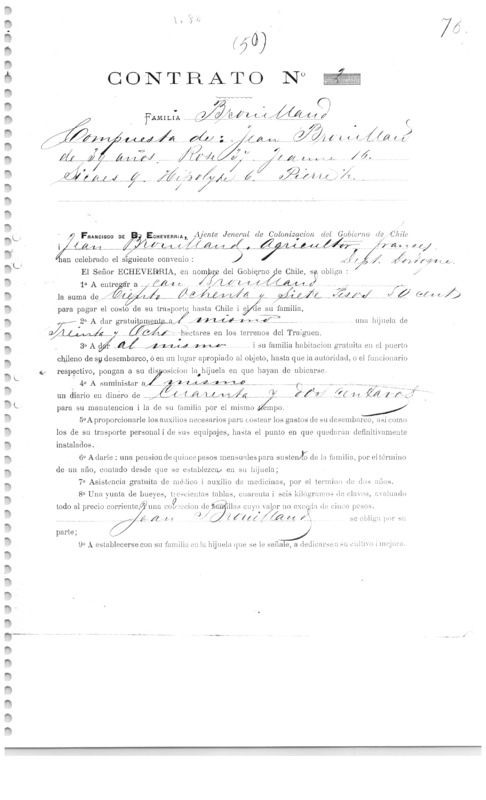 (50)
76.
CONTRATO Nº 3
FAMILIA Brouilland
Compuesta de: Jean Brouilland
de 39 años. Rose 37 Jeanne 16.
9 Hipolyte 6 Pierre
FRANCISCO DE B. ECHEVERRIA, Ajente Jeneral de Colonizacion del Gobierno de Chile
i Jean Brouilland, Agricultor, frances,
han celebrado el siguiente convenio: Dept. Dordogne.
El Señor ECHEVERRIA, en nombre del Gobierno de Chile, se obliga:
1º A entregar a Jean Brouilland
la suma de Ciento Ochenta y Siete Pesos 50 cent
para pagar el costo de su trasporte hasta Chile i el de su familia,
2º A dar gratuitamente al mismo una hijuela de
Treinta y Ocho hectares en los terrenos del Traiguen.
3º A dar al mismo i su familia habitacion gratuita en el puerto
chileno de su desembarco, ó en un lugar apropiado al objeto, hasta que la autoridad, o el funcionario
respectivo, pongan a su disposicion la hijuela en que hayan de ubicarse.
4º A suministar a l mismo
un diario en dinero de Cuarenta y dos Centavos
para su manutencion i la de su familia por el mismo tiempo.
5º A proporcionarle los auxilios necesarios para costear los gastos de su desembarco, asi como
los de su trasporte personal i de sus equipajes, hasta el punto en que quedaran definitivamente
instalados.
6º A darle: una pension de quince pesos mensuales para sustento de la familia, por el término
de un año, contado desde que se establezca en su hijuela;
7º Asistencia gratuita de médico i auxilio de medicinas, por el termino de dos años.
8º Una yunta de bueyes, trescientas tablas, cuarenta i seis kilógramos de clavos, avaluado
todo al precio corriente, i una coleccion de semillas cuyo valor no exceda de cinco pesos.
Jean Brouilland se obliga por su
parte;
9º A establecerse con su familia en la hijuela que se le señale, a dedicarse a su cultivo i mejora.